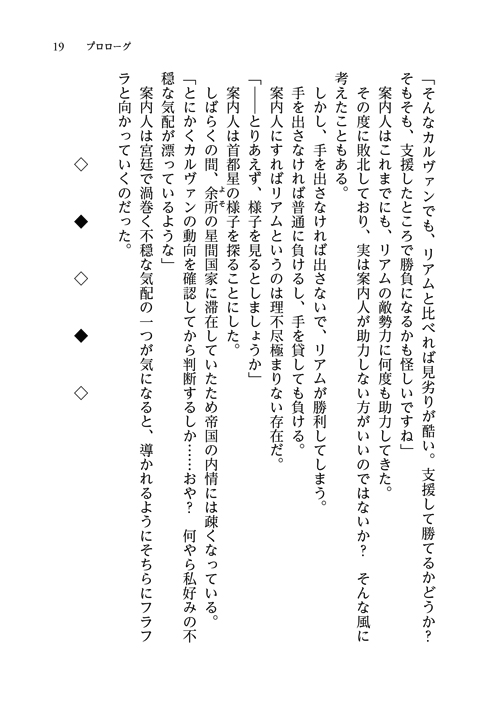 19　プロローグ
「そんなカルヴァンでも、リアムと比べれば見劣りが酷い。支援して勝てるかどうか？
そもそも、支援したところで勝負になるかも怪しいですね」
　案内人はこれまでにも、リアムの敵勢力に何度も助力してきた。
　その度に敗北しており、実は案内人が助力しない方がいいのではないか？　そんな風に
考えたこともある。
　しかし、手を出さなければ出さないで、リアムが勝利してしまう。
　手を出さなければ普通に負けるし、手を貸しても負ける。
　案内人にすればリアムというのは理不尽極まりない存在だ。
「――とりあえず、様子を見るとしましょうか」
　案内人は首都星の様子を探ることにした。
　しばらくの間、余所の星間国家に滞在していたため帝国の内情には疎くなっている。
「とにかくカルヴァンの動向を確認してから判断するしか……おや？　何やら私好みの不
穏な気配が漂っているような」
　案内人は宮廷で渦巻く不穏な気配の一つが気になると、導かれるようにそちらにフラフ
ラと向かっていくのだった。
◇　◆　◇　◆　◇